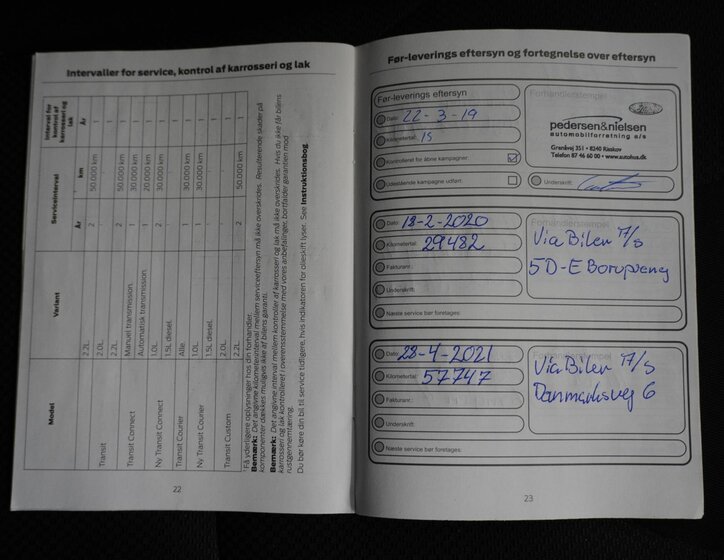 Intervaller for service, kontrol af karrosseri og lak
Model
Variant
Serviceinterval
Interval for kontrol af karrosseri og lak
År
km
År
2.2L 2 50.000 km 1
Transit
2.0L
2.2L 2 50.000 km 1
Transit Connect
Manuel transmission. 1 30.000 km 1
Automatisk transmission. 1 20.000 km 1
Ny Transit Connect
1.0L 2 30.000 km 1
1.5L diesel. 1
Transit Courier
Alle 1 30.000 km 1
Ny Transit Courier
1.0L 1 30.000 km 1
1.5L diesel.
Transit Custom
2.0L
2.2L 2 50.000 km 1
Få yderligere oplysninger hos din forhandler.
Bemærk: Det angivne kilometerinterval mellem serviceeftersyn må ikke overskrides. Resulterende skader på
komponenter dækkes muligvis ikke af bilens garanti.
Bemærk: Det angivne interval mellem kontroller af karrosseri og lak må ikke overskrides. Hvis du ikke får bilens
karrosseri og lak kontrolleret i overensstemmelse med vores anbefalinger, bortfalder garantien mod
rustgennemtæring.
Du bør køre din bil til service tidligere, hvis indikatoren for olieskift lyser. See Instruktionsbog.
22
Før-leverings eftersyn og fortegnelse over eftersyn
Før-leverings eftersyn
Dato: 22-3-19
Kilometertal: 15
Kontrolleret for åbne kampagner:
Udestående kampagne udført:
Forhandlerstempel
Ford
pedersen&nielsen
automobilforretning a/s
Grenåvej 351 • 8240 Risskov
Telefon 87 46 60 00 • www.autohus.dk
Underskrift:
Dato: 18-2-2020
Kilometertal: 29482
Fakturanr.:
Underskrift:
Næste service bør foretages:
Forhandlerstempel
Via Biler A/S
Dato: 28-4-2021
Kilometertal: 57747
Fakturanr.:
Underskrift:
Næste service bør foretages:
Via Biler A/S
Danmarksvej 6
23